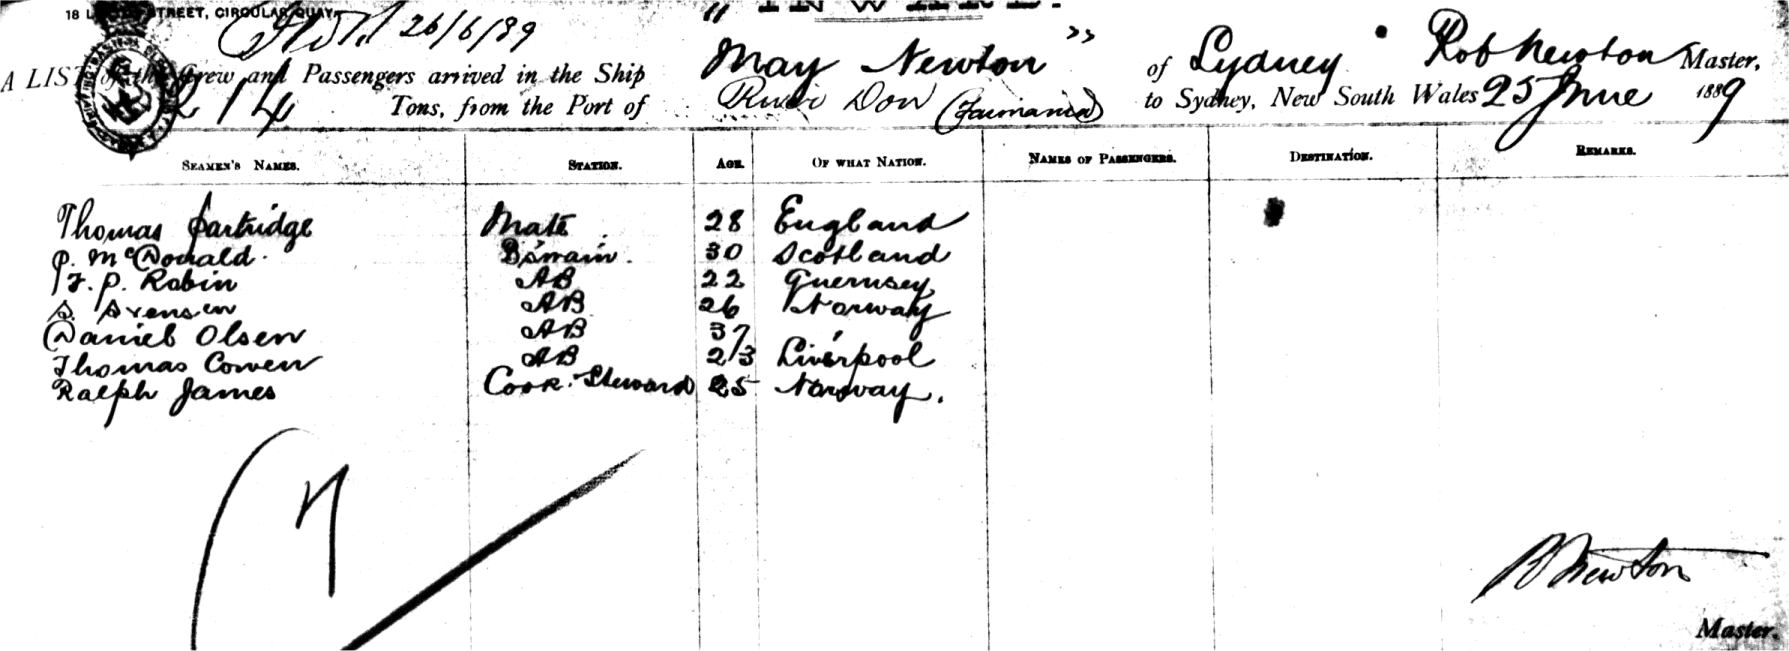 STREET, CIRCULAR QUAY,
26/6/89
"INWARD."
A LIST of the Crew and Passengers arrived in the Ship "May Newton" of Sydney Rob Newton Master,
214 Tons, from the Port of River Don (Tasmania) to Sydney, New South Wales 25 June 1889
SEAMEN'S NAMES. STATION. AGE. OF WHAT NATION. NAMES OF PASSENGERS. DESTINATION. REMARKS.
Thomas Partridge Mate 28 England
P. McDonald. B'swain. 30 Scotland
F. P. Robin AB 22 Guernsey
S. Svensen AB 26 Norway
Daniel Olsen AB 37 "
Thomas Cowen AB 23 Liverpool
Ralph James Cook. Steward 25 Norway.
7
R Newton
Master.